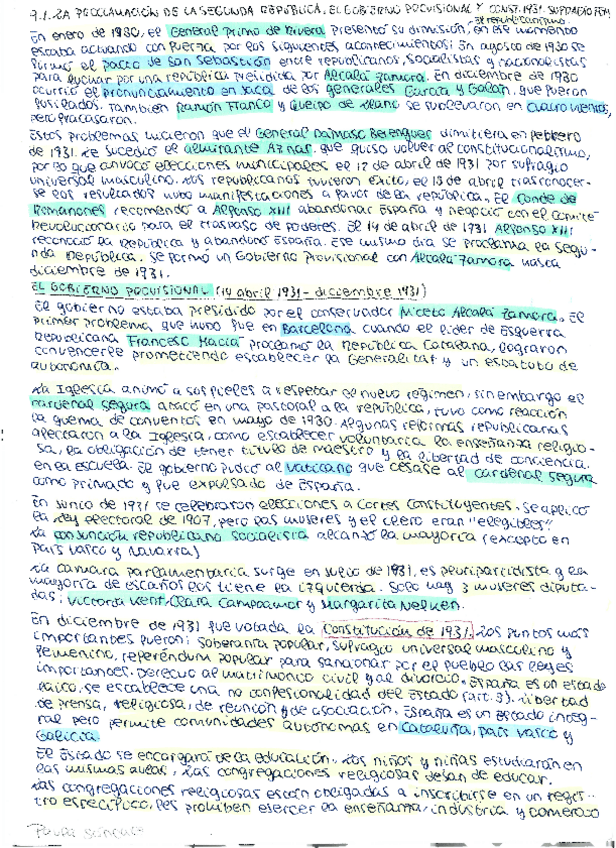 9.1. LA PROCLAMACIÓN DE LA SEGUNDA REPÚBLICA, EL GOBIERNO PROVISIONAL Y CONST. 1931. SUFRAGIO FEM
El republicanismo
En enero de 1930, el General Primo de Rivera presentó su dimisión, en ese momento
estaba actuando con fuerza por los siguientes acontecimientos: En agosto de 1930 se
formó el pacto de San Sebastián entre republicanos, socialistas y nacionalistas
para luchar por una república presidida por Alcalá Zamora. En diciembre de 1930
ocurrió el pronunciamiento en Jaca de los generales García y Galán, que fueron
fusilados. También Ramón Franco y Queipo de Llano se sublevaron en Cuatro Vientos,
pero fracasaron.
Estos problemas hicieron que el General Dámaso Berenguer dimitiera en febrero
de 1931. Le sucedió el almirante Aznar, que quiso volver al constitucionalismo,
por lo que convocó elecciones municipales el 12 de abril de 1931 por sufragio
universal masculino. Los republicanos tuvieron éxito, el 13 de abril tras conocer-
se los resultados hubo manifestaciones a favor de la república. El Conde de
Romanones recomendó a Alfonso XIII abandonar España y negoció con el comité
revolucionario para el traspaso de poderes. El 14 de abril de 1931 Alfonso XIII
reconoció la República y abandonó España. Ese mismo día se proclama la Segu-
nda República. Se formó un Gobierno Provisional con Alcalá Zamora hasta
diciembre de 1931.
EL GOBIERNO PROVISIONAL (14 abril 1931 - diciembre 1931)
El gobierno estaba presidido por el conservador Niceto Alcalá Zamora. El
primer problema que hubo fue en Barcelona cuando el líder de Esquerra
Republicana Francesc Macià proclamó la República Catalana, lograron
convencerle prometiendo establecer la Generalitat y un estatuto de
autonomía.
La Iglesia animó a sus fieles a respetar el nuevo régimen, sin embargo el
cardenal Segura atacó en una pastoral a la república, tuvo como reacción
la quema de conventos en mayo de 1930. Algunas reformas republicanas
afectaron a la Iglesia, como establecer voluntaria la enseñanza religio-
sa, la obligación de tener título de maestro y la libertad de conciencia.
en la escuela. El gobierno pidió al Vaticano que cesase al cardenal Segura
como primado y fue expulsado de España.
En junio de 1931 se celebraron elecciones a Cortes Constituyentes. Se aplicó
la ley electoral de 1907, pero las mujeres y el clero eran "elegibles".
La conjunción republicano socialista alcanzó la mayoría (excepto en
País Vasco y Navarra)
La cámara parlamentaria surge en julio de 1931, es pluripartidista y la
mayoría de escaños los tiene la izquierda. Solo hay 3 mujeres diputa-
das: Victoria Kent, Clara Campoamor y Margarita Nelken.
En diciembre de 1931 fue votada la Constitución de 1931. Los puntos más
importantes fueron: soberanía popular, sufragio universal masculino y
femenino, referéndum popular para sancionar por el pueblo las leyes
importantes. Derecho al matrimonio civil y al divorcio. España es un estado
laico, se establece una no confesionalidad del Estado (art. 3). Libertad
de prensa, religiosa, de reunión y de asociación. España es un Estado integ-
ral pero permite comunidades autónomas en Cataluña, País Vasco y
Galicia.
El Estado se encargará de la educación. Los niños y niñas estudiarán en
las mismas aulas, las congregaciones religiosas dejan de educar.
Las congregaciones religiosas están obligadas a inscribirse en un regis-
tro específico, les prohíben ejercer la enseñanza, industria y comercio
Paula Sánchez